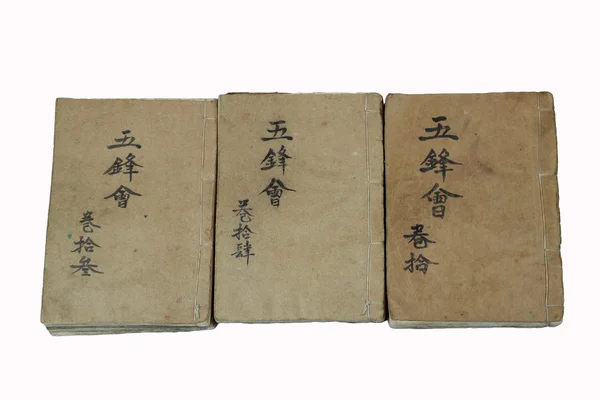 五鋒會
卷拾叁
五鋒會
卷拾肆
五鋒會
卷拾